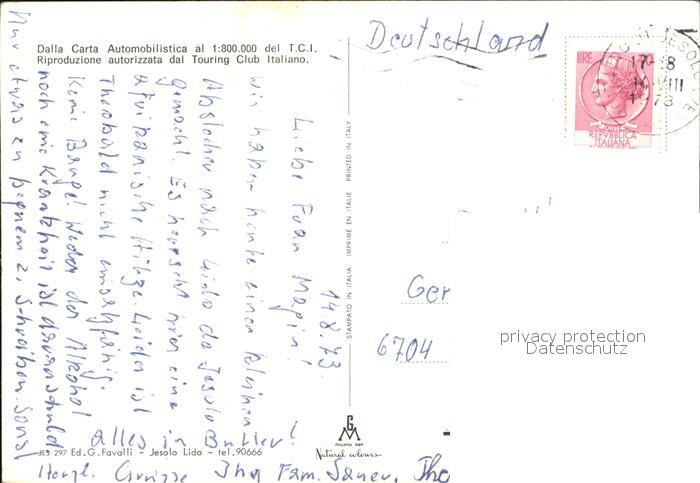 Dalla Carta Automobilistica al 1:800.000 del T.C.I.
Riproduzione autorizzata dal Touring Club Italiano.
14.8.73.
Liebe Frau Magin!
Wir haben heute einen kleinen
Abstecher nach Lido de Jesolo
gemacht. Es herrscht hier eine
afrikanische Hitze. Leider ist
Theobald nicht einsatzfähig.
Keine Bange! Weder der Alkohol
noch eine Krankheit ist daran schuld
Nur etwas zu bequem z. Schreiben. Sonst
alles in Butter!
Herzl. Grüsse Ihre Fam.
JES 297 Ed. G. Favalli - Jesolo Lido - tel. 90666
STAMPATO IN ITALIA IMPRIMÉ EN ITALIE PRINTED IN ITALY
G
M
MILANO
Natural colours
Deutschland
Ger
6704
LIRE
POSTE
REPVBBLICA
ITALIANA
17-18
VIII
1973
privacy protection
Datenschutz